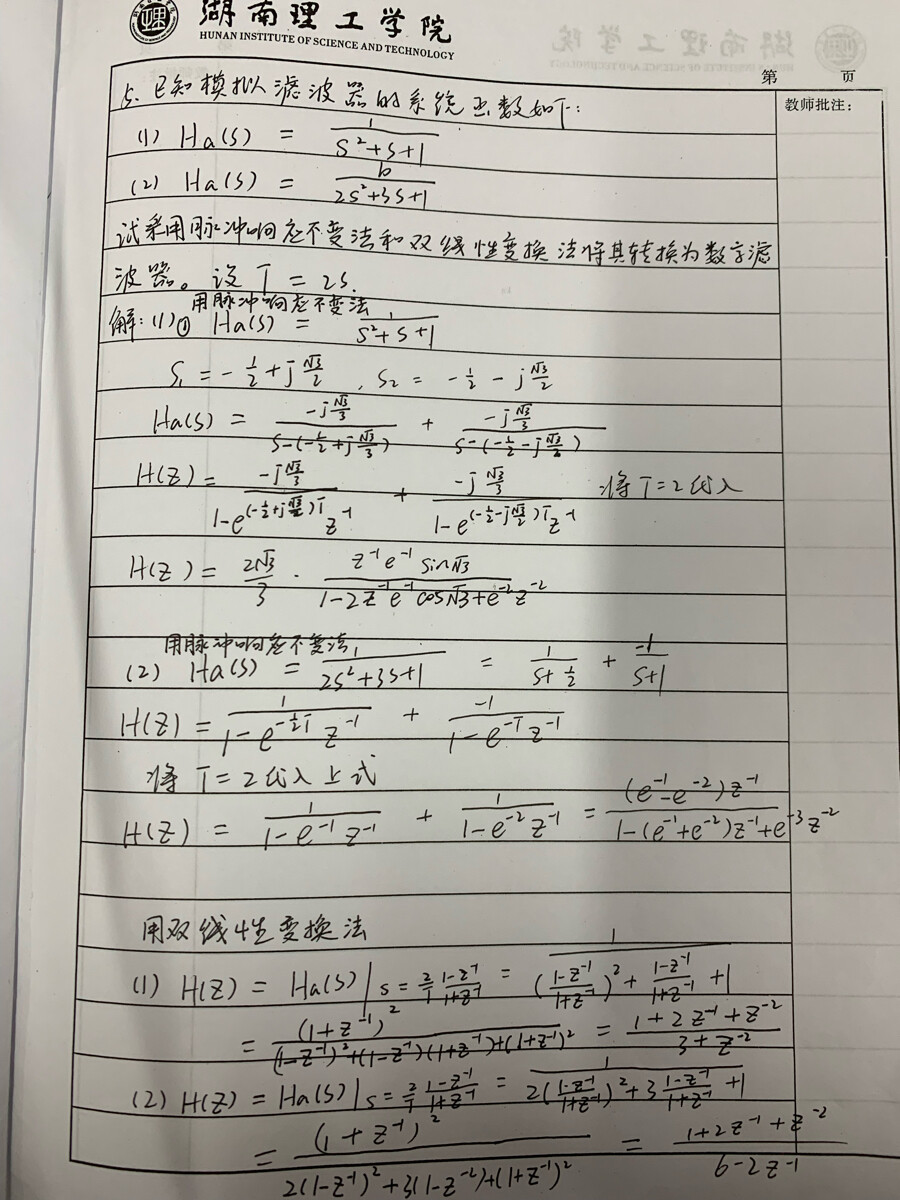 湖南理工学院
HUNAN INSTITUTE OF SCIENCE AND TECHNOLOGY
第 页
教师批注:
5. 已知模拟滤波器的系统函数如下:
(1) Ha(s) = 1/(s²+s+1)
(2) Ha(s) = b/(2s²+3s+1)
试采用脉冲响应不变法和双线性变换法将其转换为数字滤
波器。设T=2s.
用脉冲响应不变法
解:(1)① Ha(s) = 1/(s²+s+1)
S₁ = -1/2+j√3/2 , S₂ = -1/2-j√3/2
Ha(s) = (-j√3/3)/(s-(-1/2+j√3/3)) + (-j√3/3)/(s-(-1/2-j√3/2))
H(z) = (-j√3/3)/(1-e^((-1/2+j√3/2)T) z⁻¹) + (-j√3/3)/(1-e^((-1/2-j√3/2)T) z⁻¹) 将T=2代入
H(z) = 2√3/3 · (z⁻¹e⁻¹sin√3)/(1-2z⁻¹e⁻¹cos√3+e⁻²z⁻²)
用脉冲响应不变法
(2) Ha(s) = 1/(2s²+3s+1) = 1/(s+1/2) + -1/(s+1)
H(z) = 1/(1-e^(-1/2T) z⁻¹) + -1/(1-e^(-T) z⁻¹)
将T=2代入上式
H(z) = 1/(1-e⁻¹z⁻¹) + 1/(1-e⁻²z⁻¹) = ((e⁻¹-e⁻²)z⁻¹)/(1-(e⁻¹+e⁻²)z⁻¹+e⁻³z⁻²)
用双线性变换法
(1) H(z) = Ha(s)|s=2/T (1-z⁻¹)/(1+z⁻¹) = 1/(((1-z⁻¹)/(1+z⁻¹))²+(1-z⁻¹)/(1+z⁻¹)+1)
= (1+z⁻¹)²/((1-z⁻¹)²+(1-z⁻¹)(1+z⁻¹)+(1+z⁻¹)²) = (1+2z⁻¹+z⁻²)/(3+z⁻²)
(2) H(z) = Ha(s)|s=2/T (1-z⁻¹)/(1+z⁻¹) = 1/(2((1-z⁻¹)/(1+z⁻¹))²+3(1-z⁻¹)/(1+z⁻¹)+1)
= (1+z⁻¹)²/(2(1-z⁻¹)²+3(1-z⁻²)+(1+z⁻¹)²) = (1+2z⁻¹+z⁻²)/(6-2z⁻¹)